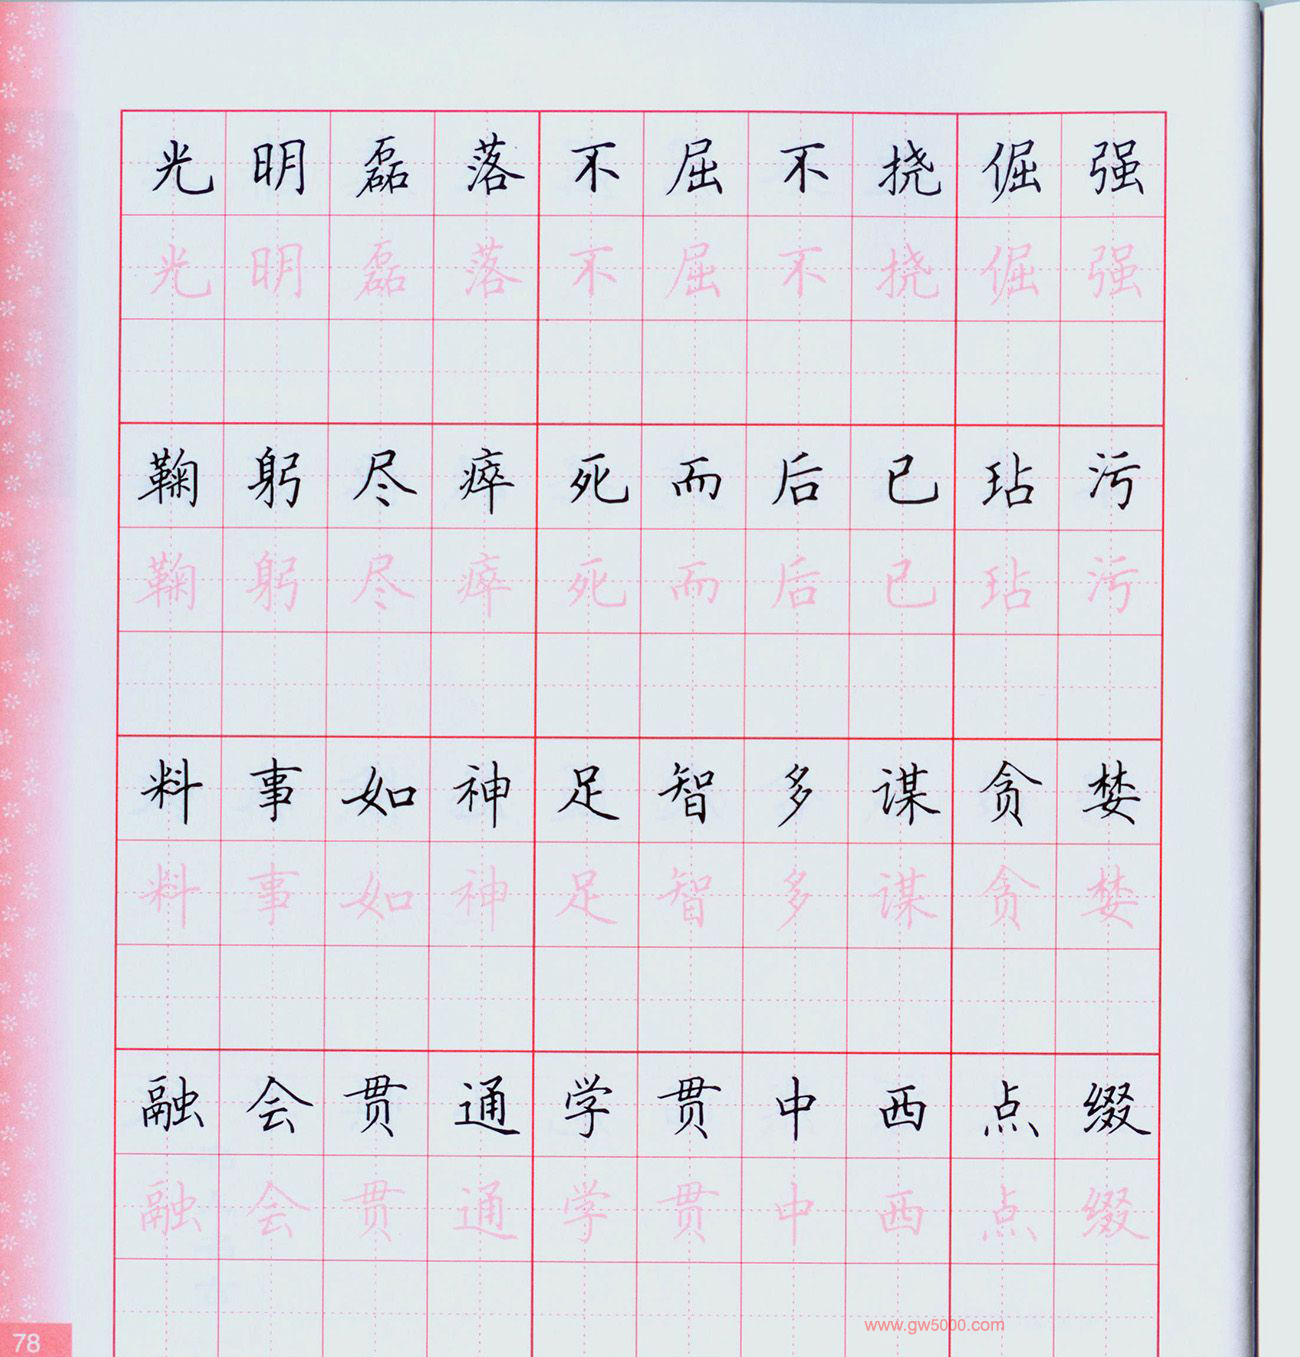 光明磊落不屈不挠倔强
光明磊落不屈不挠倔强
鞠躬尽瘁死而后已玷污
鞠躬尽瘁死而后已玷污
料事如神足智多谋贪婪
料事如神足智多谋贪婪
融会贯通学贯中西点缀
融会贯通学贯中西点缀
www.gw5000.com
78